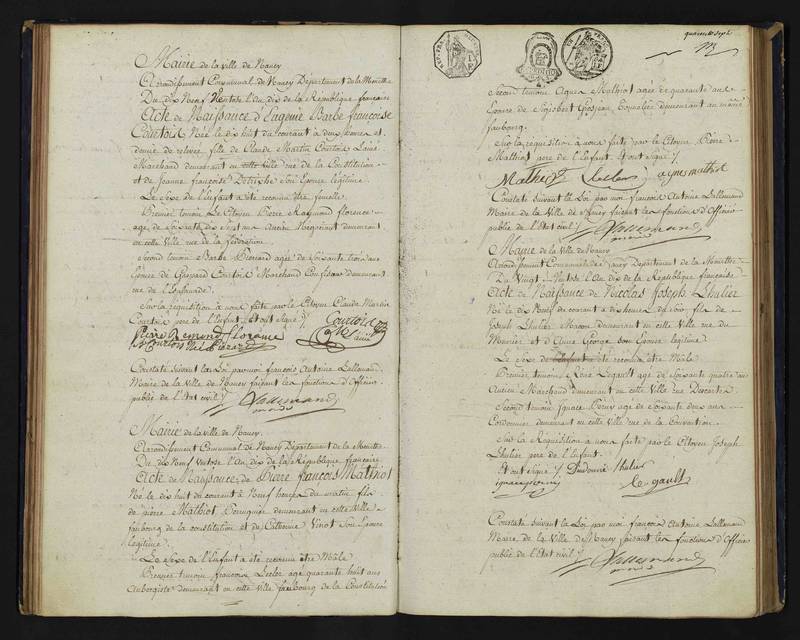 Mairie de la ville de Nancy
Arrondissement Communal de Nancy Département de la Meurthe
Du dix Neuf Ventose l'An dix de la République française
Acte de Naissance d'Eugenie Barbe françoise
Courtois Née le dix huit du courant à deux heures et
demie de relevée, fille de Claude Martin Courtois L'ainé
Marchand demeurant en cette Ville rue de la Constitution
et de Jeanne françoise Son Epouse légitime.
Le Sexe de l'Enfant a été reconnu être femelle
Premier temoin Le Citoyen Pierre Raymond florence
agé de Soixante dix Sept ans Ancien Negociant demeurant
en cette Ville rue de la fédération.
Second temoin Barbe agée de Soixante trois ans
Epouse de Gaspard Courtois Marchand Confiseur demeurant
rue de l'Esplanade.
Sur la requisition à nous faite par le Citoyen Claude Martin
Courtois pere de l'Enfant. Et ont Signé
Courtois
florence
Constaté suivant la Loi par moi françois Antoine Lallemand
Maire de la Ville de Nancy faisant les fonctions d'Officier
public de l'état civil
Lallemand
maire
Mairie de la ville de Nancy.
Arrondissement Communal de Nancy Département de la Meurthe
Du dix Neuf Ventose l'An dix de la République française
Acte de Naissance de Pierre françois Mathiot
Né le dix huit du courant à Neuf heures du matin fils
de pierre Mathiot Perruquier demeurant en cette Ville
faubourg de la constitution et de Catherine Vinot Son Epouse
legitime
Le Sexe de l'Enfant a été reconnu être Mâle
Premier temoin françois Leclerc agé quarante huit ans
Aubergiste demeurant en cette Ville faubourg de la Constitution
quarante sept
Second temoin Agnes Mathiot agée de quarante ans
Epouse de demeurant au même
faubourg.
Sur la requisition à nous faite par le Citoyen Pierre
Mathiot pere de l'Enfant. Et ont signé
Mathiot Leclerc agnes mathiot
Constaté suivant la Loi par moi françois Antoine Lallemand
Maire de la Ville de Nancy faisant les fonctions d'Officier
public de l'Etat civil
Lallemand
maire
Mairie de la Ville de Nancy
Arrondissement Communal de Nancy Departement de la Meurthe
Du Vingt Ventose l'An dix de la République française
Acte de Naissance de Nicolas Joseph Lhulier
Né le dix Neuf du courant à dix heures du soir fils de
Joseph Lhulier Macon demeurant en cette Ville rue du
et d'Anne George Son Epouse legitime.
Le Sexe de l'Enfant a été reconnu être Mâle
Premier temoin René Legault agé de Soixante quatre ans
Ancien Marchand demeurant en cette Ville rue Descartes.
Second temoin Ignace agé de Soixante deux ans
Cordonnier demeurant en cette Ville rue de la Convention.
Sur la Requisition a nous faite par le Citoyen Joseph
Lhulier pere de l'Enfant.
Et ont signé lhulier
le gault
Constaté suivant la Loi par moi françois Antoine Lallemand
Maire de la Ville de Nancy faisant les fonctions d'Officier
public de l'Etat civil
Lallemand
maire